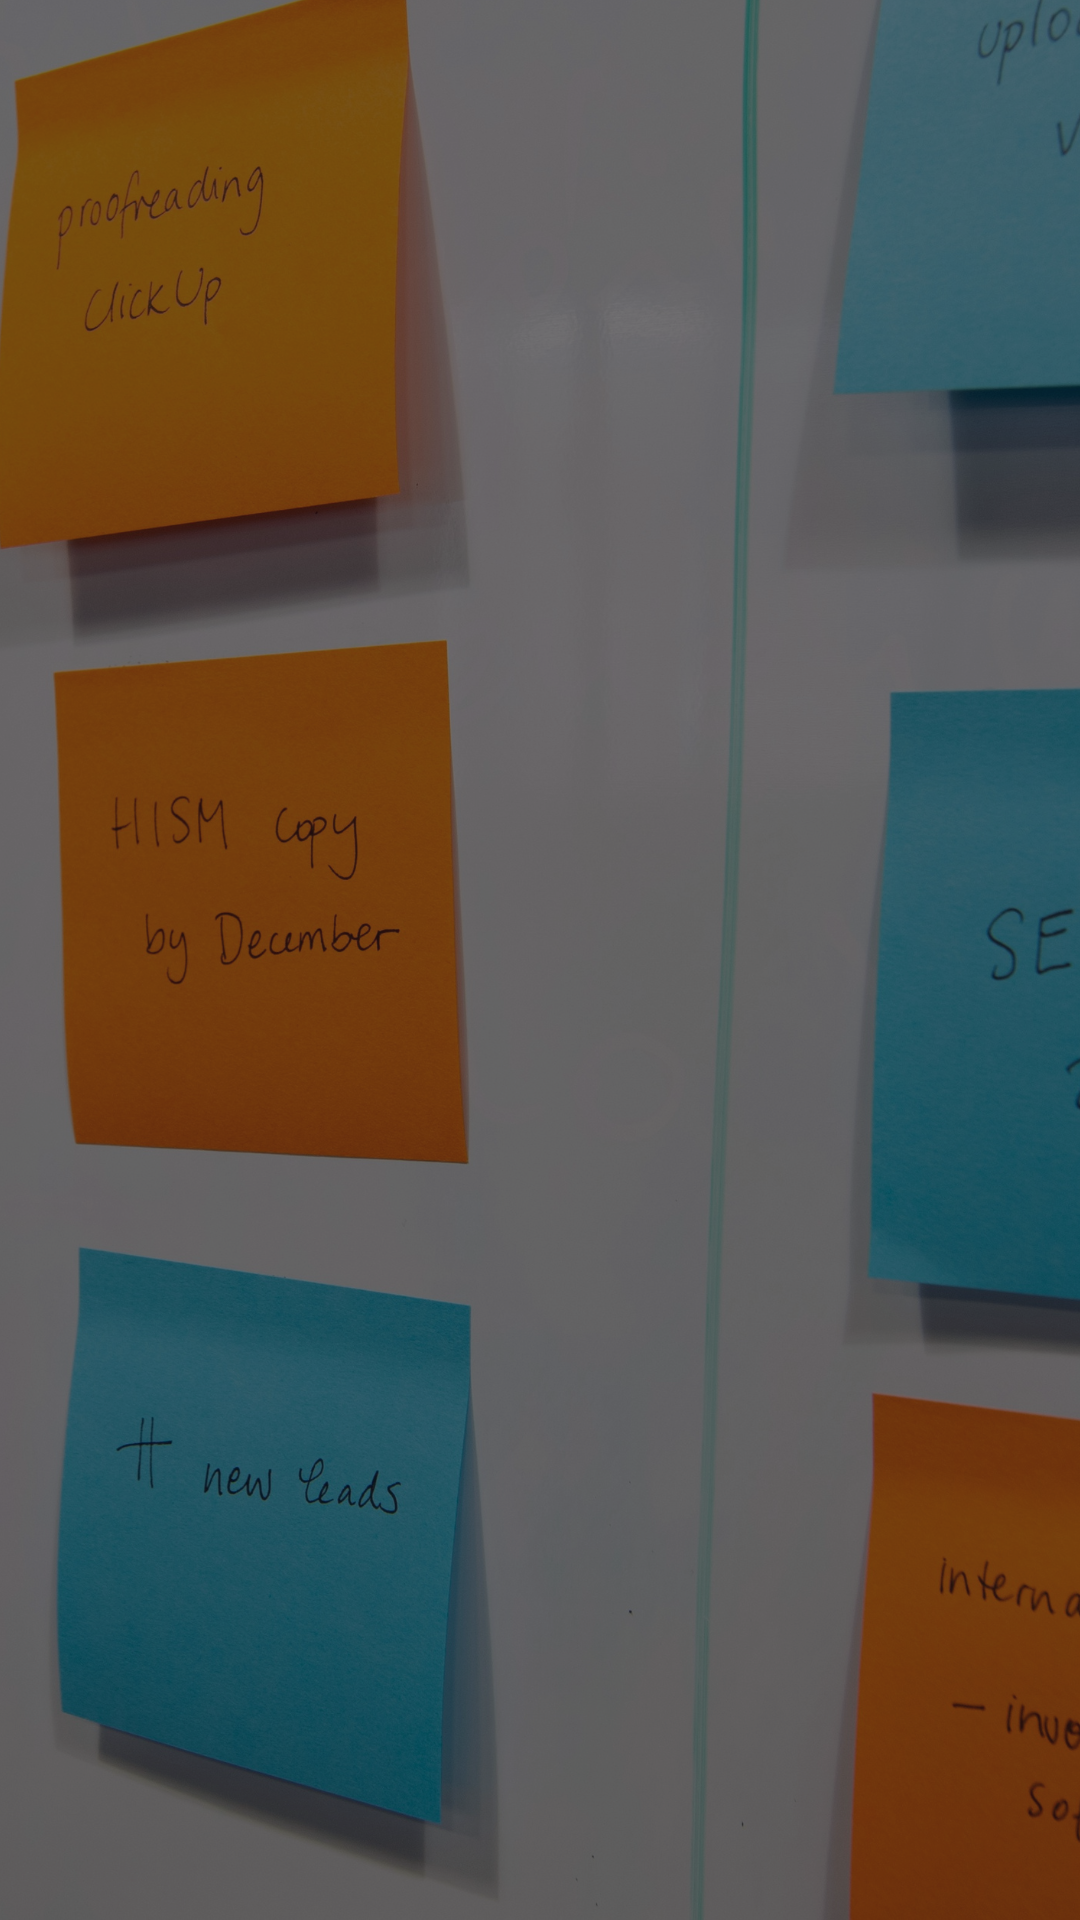 proofreading
ClickUp
HISM copy
by December
# new leads
uplo
V
SE
intern
- invo
So